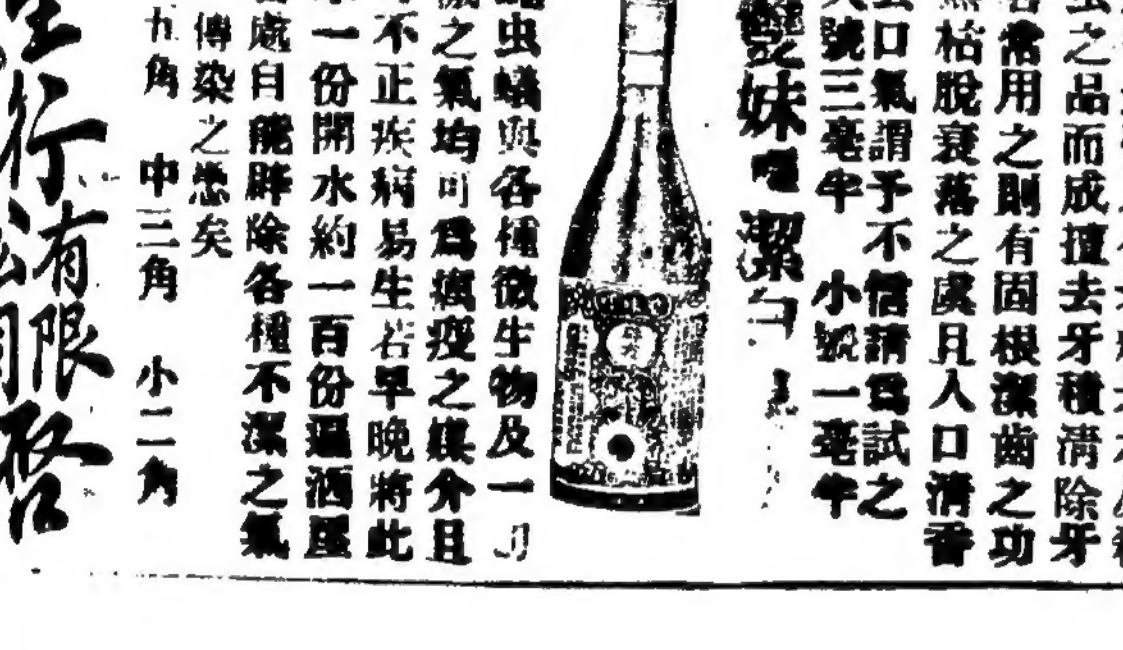 虫之品而成擅去牙積清除牙
常用之則有固根潔齒之功
枯脫衰落之虞且入口清香
口氣謂予不信請爲試之
號三毫半 小號一毫半
艷妹
潔
虫蟻與各種微生物及一切
之氣均可爲瘟疫之媒介且
不正疾病易生若早晚將此
一份開水約一百份遍洒屋
處自能辟除各種不潔之氣
傳染之患矣
五角 中三角 小二角
行有限公司啓